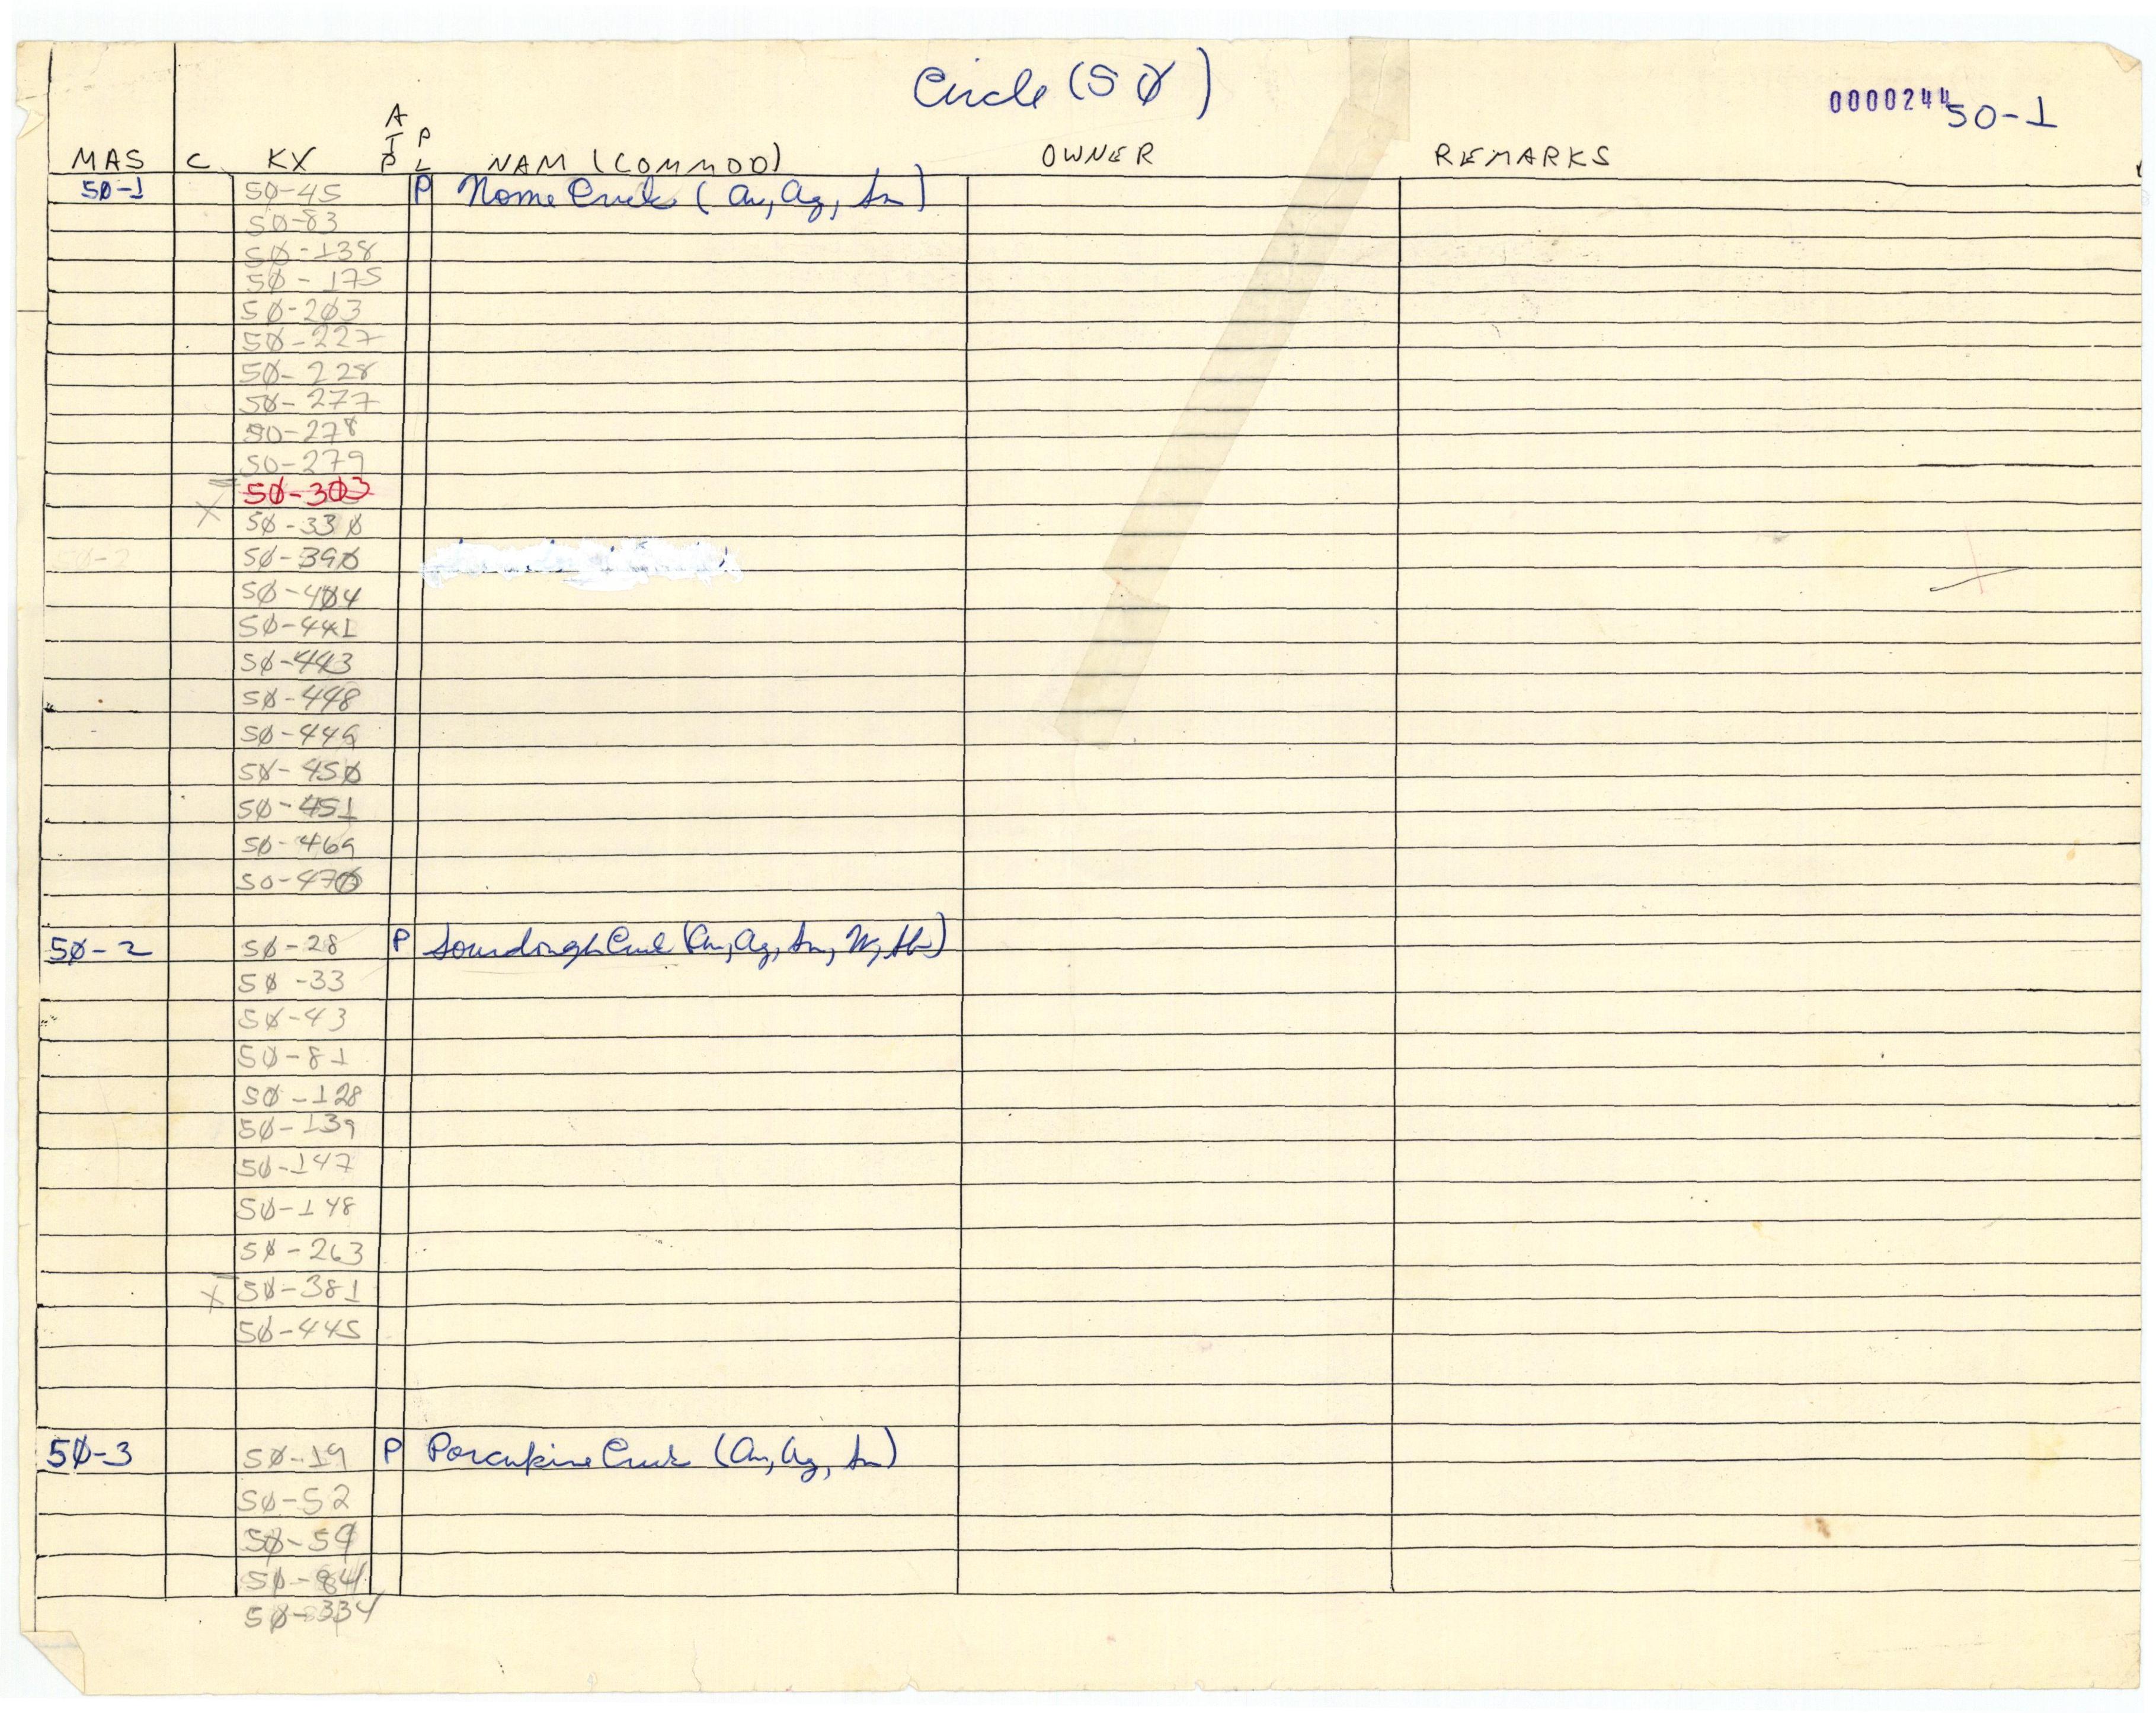 Circle (5Ø)
0000244 50-1
A
T P
MAS C KX P L NAM (COMMOD) OWNER REMARKS
5Ø-1 50-45 P Nome Creek (Au, Ag, Sn)
5Ø-83
5Ø-138
5Ø-175
5Ø-2Ø3
5Ø-227
5Ø-228
5Ø-277
50-278
50-279
5Ø-3Ø3
X 5Ø-33Ø
50-2 5Ø-39Ø
5Ø-4Ø4
5Ø-441
5Ø-443
5Ø-448
5Ø-449
5Ø-45Ø
5Ø-451
5Ø-469
50-47Ø
5Ø-2 5Ø-28 P Sourdough Creek (Au, Ag, Sn, W, Sb)
5Ø-33
5Ø-43
5Ø-81
5Ø-128
5Ø-139
5Ø-147
5Ø-148
5Ø-263
X 5Ø-381
5Ø-445
5Ø-3 5Ø-19 P Porcupine Creek (Au, Ag, Sn)
5Ø-52
5Ø-59
5Ø-84
5Ø-334